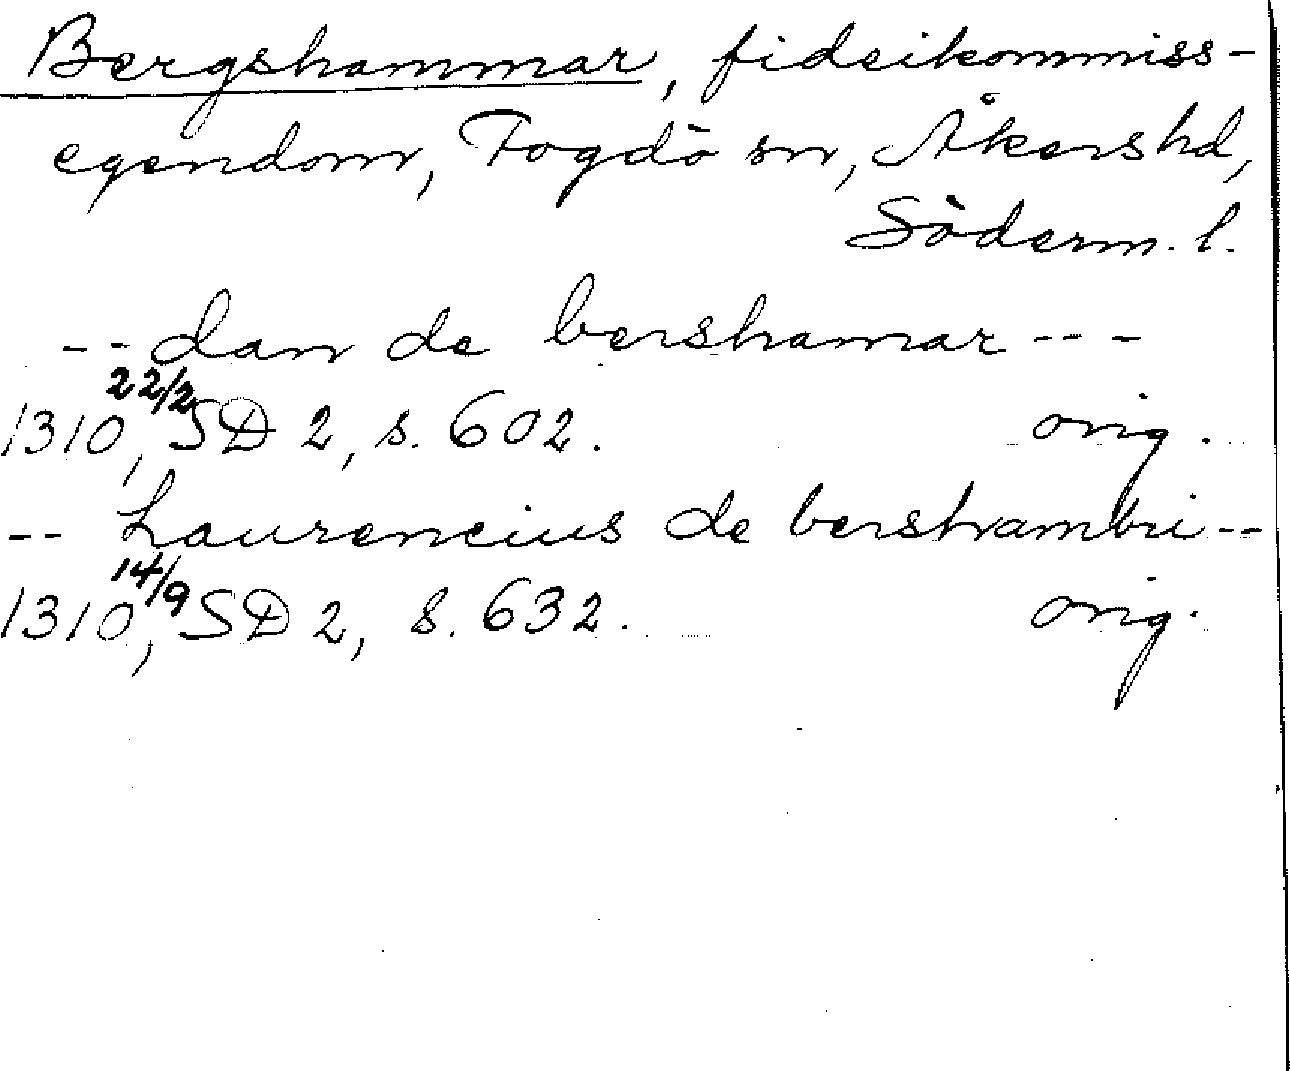 Bergshammar, fideikommiss-
egendom, Fogdö sn, Åkers hd,
Söderm. l.
-- dan de bershamar ---
1310 22/2, SD 2, s. 602. orig.
-- Laurencius de bershambri --
1310 14/9, SD 2, s. 632. orig.